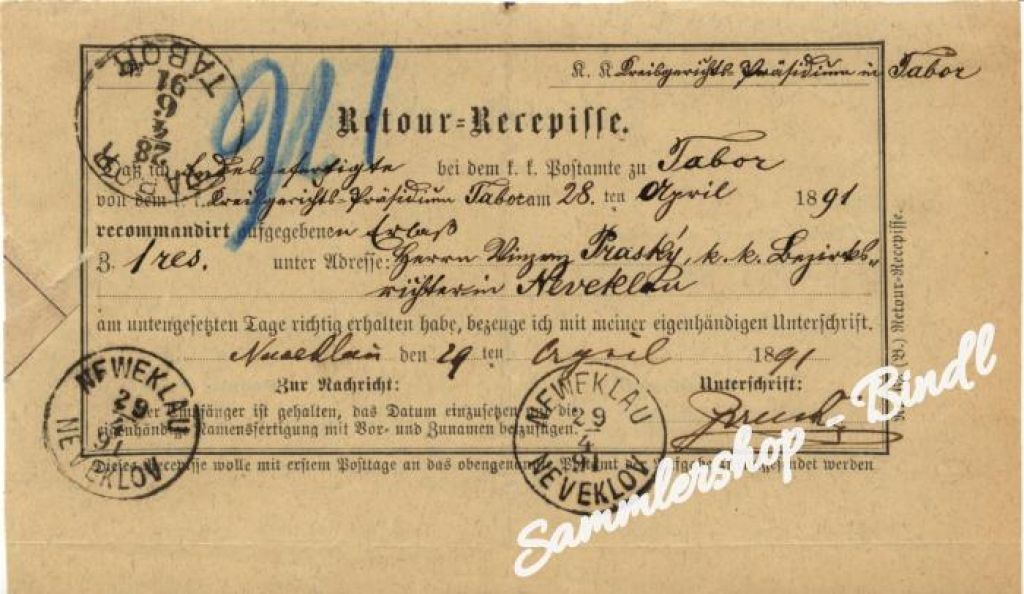 TABOR
28/4
91
91
K. K. Kreisgerichts-Präsidium in Tabor
Retour-Recepisse.
Daß ich Endesgefertigte bei dem k. k. Postamte zu Tabor
von dem k. k. Kreisgerichts-Präsidium Tabor am 28. ten April 1891
recommandirt aufgegebenen Erlaß
Z. 1 res. unter Adresse: Herrn Vinzenz Praský, k. k. Bezirks-
richter in Neveklau
am untengesetzten Tage richtig erhalten habe, bezeuge ich mit meiner eigenhändigen Unterschrift.
Neveklau den 29 ten April 1891
Zur Nachricht: Unterschrift:
Der Empfänger ist gehalten, das Datum einzusetzen und die
eigenhändige Namensfertigung mit Vor- und Zunamen beizufügen.
Dieses Recepisse wolle mit erstem Posttage an das obengenannte Postamt
NEWEKLAU
29
4
91
NEVEKLOV
NEWEKLAU
29
4
91
NEVEKLOV
(B.) Retour-Recepisse.
Sammlershop - Bindl